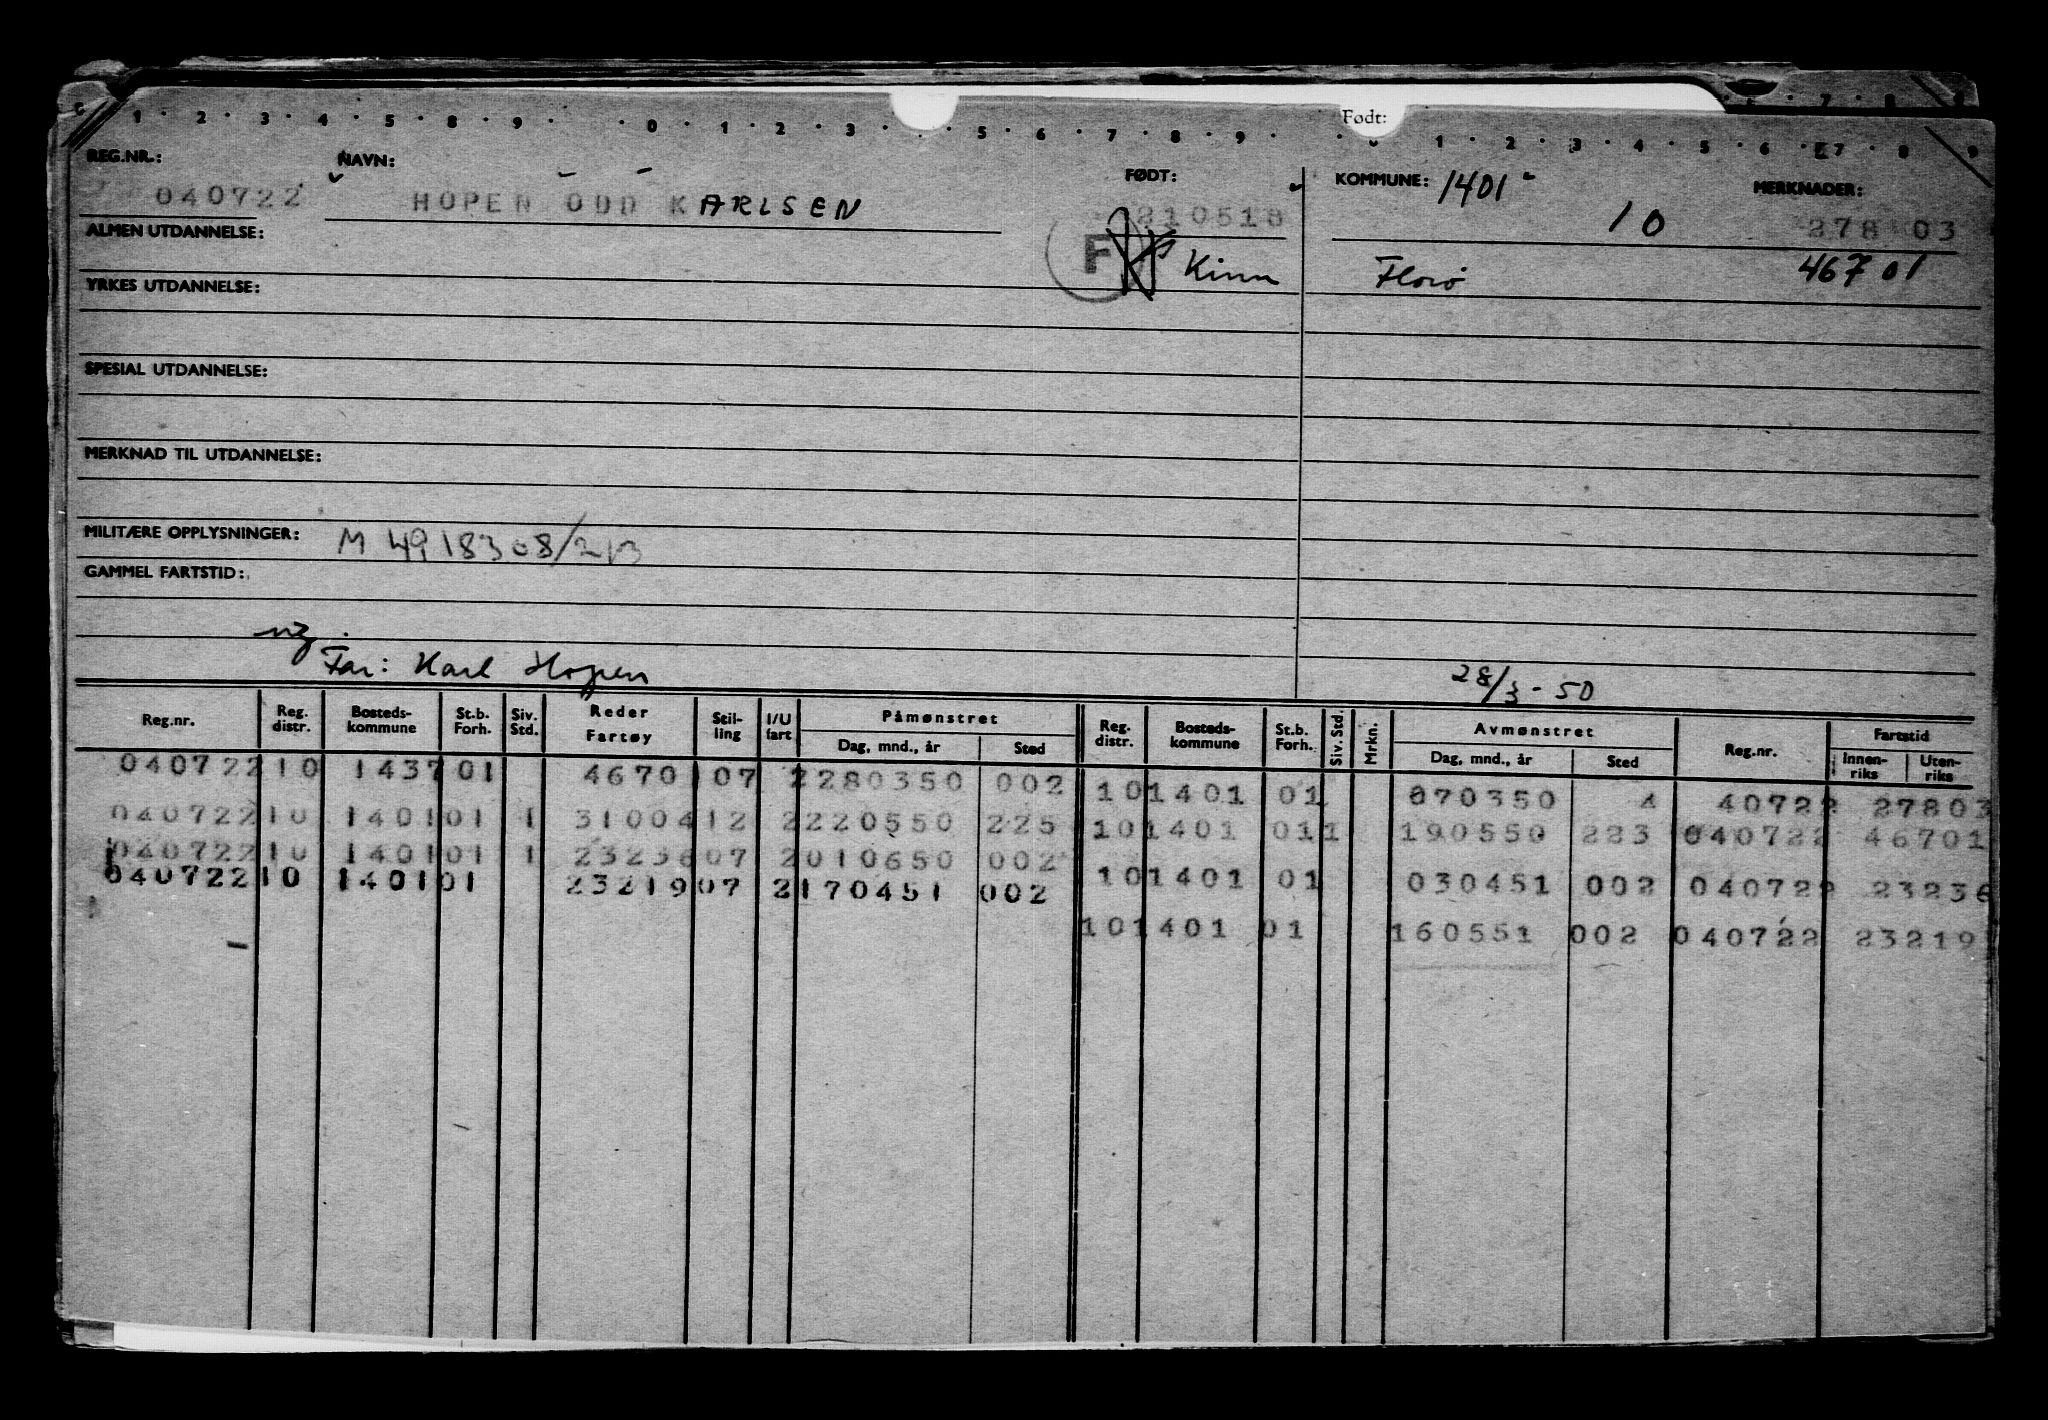 Født:
1 · 2 · 3 · 4 · 5 · 8 · 9 · 0 · 1 · 2 · 3 · 5 · 6 · 7 · 8 · 9 · 1 · 2 · 3 · 4 · 5 · 6 · 7 · 8 · 9
REG.NR.: NAVN: FØDT: KOMMUNE: 1401 MERKNADER:
040722 HOPEN ODD KARLSEN 210518 10 278 03
ALMEN UTDANNELSE: F Kinn Florø 467 01
YRKES UTDANNELSE:
SPESIAL UTDANNELSE:
MERKNAD TIL UTDANNELSE:
MILITÆRE OPPLYSNINGER: M 4918308/213
GAMMEL FARTSTID:
Far: Karl Hopen 28/3-50
Reg.nr. Reg. distr. Bosteds-kommune St.b. Forh. Siv. Std. Reder Fartøy Stil-ling I/U fart Påmønstret Dag, mnd., år Sted Reg. distr. Bosteds-kommune St.b. Forh. Siv. Std. Mrkn. Avmønstret Dag, mnd., år Sted Reg.nr. Fartstid Innen-riks Uten-riks
040722 10 1437 01 46701 07 2 280350 002 10 1401 01 070350 4 40722 27803
040722 10 1401 01 1 31004 12 2 220550 225 10 1401 01 1 190550 223 040722 46701
040722 10 1401 01 1 23236 07 2 010650 002 10 1401 01 030451 002 040722 23236
040722 10 1401 01 23219 07 2 170451 002 10 1401 01 160551 002 040722 23219